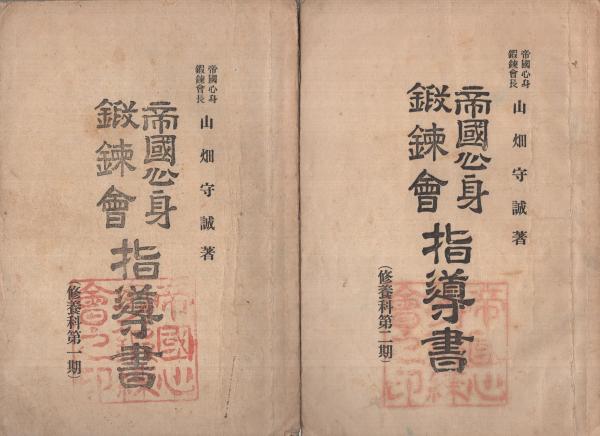 帝國心身
鍛鍊會長
山畑守誠著
帝國心身
鍛鍊會
指導書
(修養科第一期)
帝國心
會之印
帝國心身
鍛鍊會長
山畑守誠著
帝國心身
鍛鍊會
指導書
(修養科第二期)
帝國心
會之印